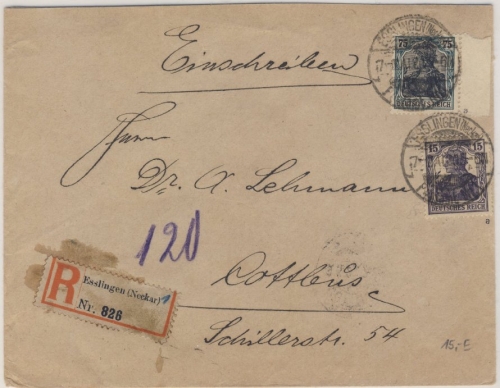 Einschreiben
75 75
DEUTSCHES REICH
ESSLINGEN
15 15
DEUTSCHES REICH
Herrn
Dr. A. Lehmann
120
R Esslingen (Neckar) 1
Nr. 826
Cottbus
Schillerstr. 54
15,-E